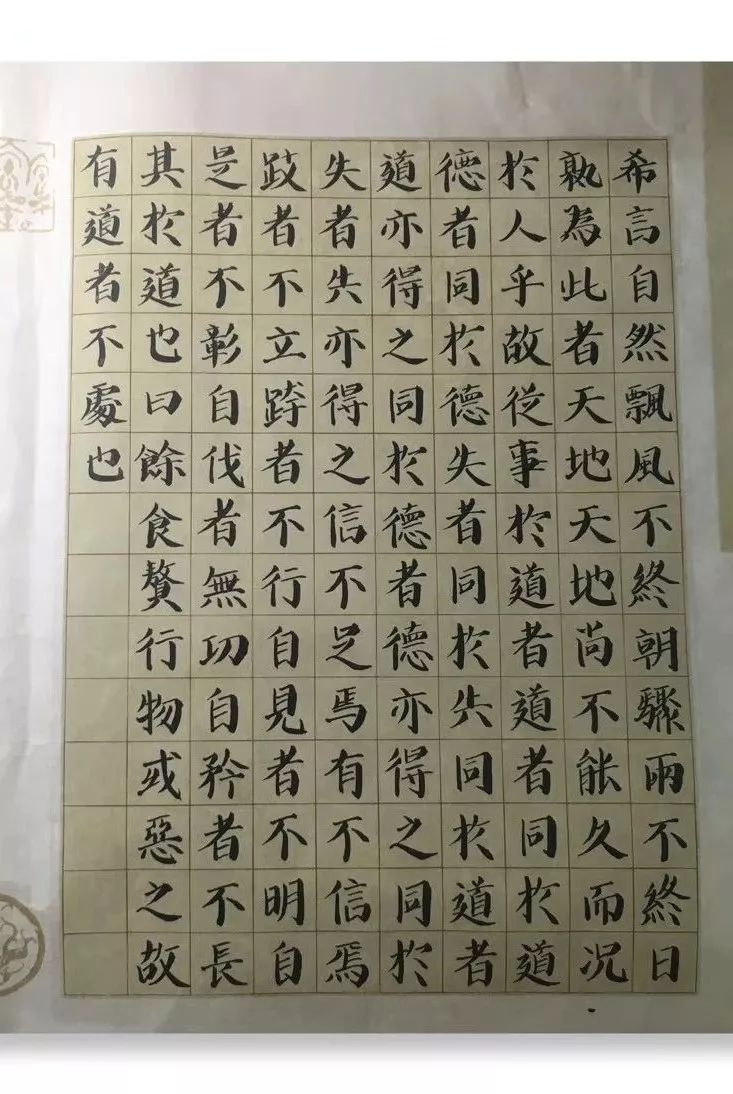 希言自然飄風不終朝驟雨不終日
孰為此者天地天地尚不能久而况
於人乎故從事於道者道者同於道
德者同於德失者同於失同於道者
道亦得之同於德者德亦得之同於
失者失亦得之信不足焉有不信焉
跂者不立跨者不行自見者不明自
是者不彰自伐者無功自矜者不長
其於道也曰餘食贅行物或惡之故
有道者不處也